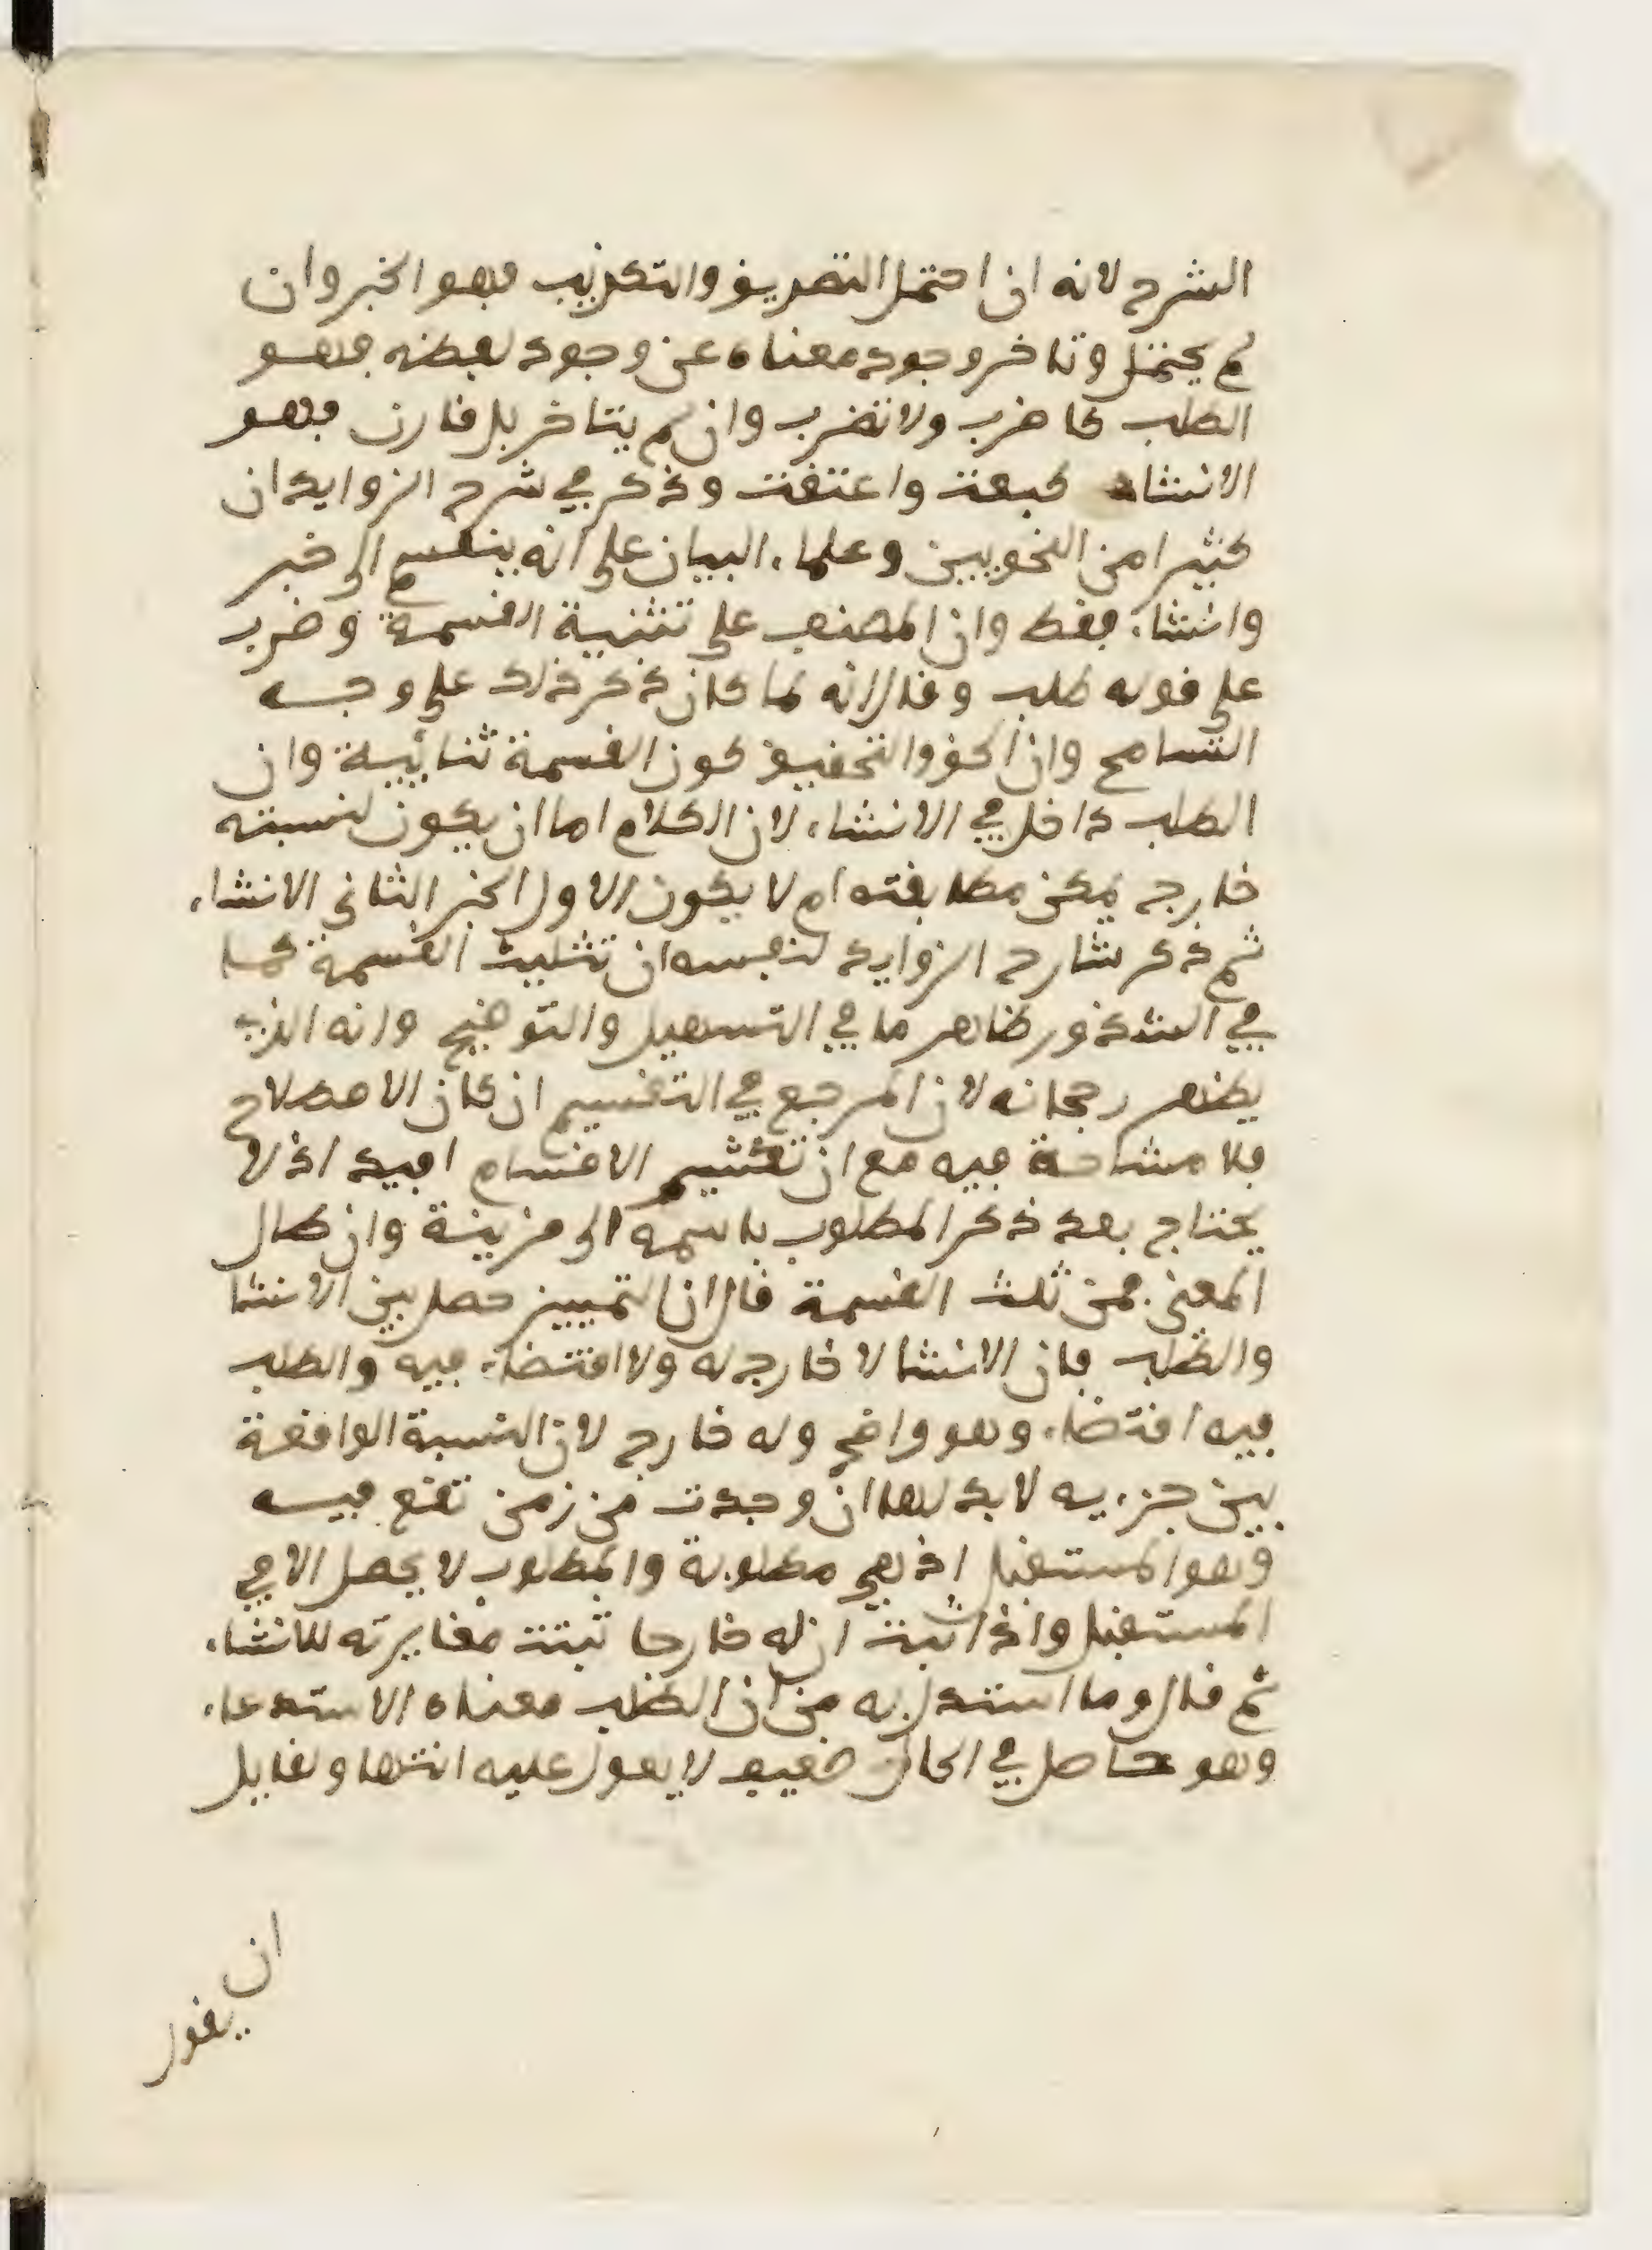 الشرح لانه ان احتمل التصديق والتكذيب فهو الخبر وان
لم يحتمل وتاخر وجود معناه عن وجود لفظه فهو
الطلب كاضرب ولا تضرب وان لم يتاخر بل قارن فهو
الانشاء كبعت واعتقت وذكر في شرح الزوايد ان
كثيرا من النحويين وعلماء البيان على انه ينقسم الى خبر
وانشاء فقط وان المصنف على تثنية القسمة وضرب
على قوله طلب وقال لانه لما كان ذكر ذلك على وجه
التسامح وان الحق والتحقيق كون القسمة ثنائيية وان
الطلب داخل في الانشاء لان الكلام اما ان يكون لنسبته
خارج يمكن مطابقته ام لا يكون الاول الخبر الثاني الانشاء
ثم ذكر شارح الزوايد لنفسه ان تثليث القسمة كما
في الشذور ظاهر ما في التسهيل والتوضيح وانه الذي
يظهر رجحانه لان المرجع في التقسيم ان كان الاصطلاح
فلا مشاحة فيه مع ان تكثير الاقسام افيد اذ لا
يحتاج بعد ذكر المطلوب باسمه الى قرينة وان كان
المعنى فمن ثلث القسمة قال ان التمييز حصل بين الانشا
والطلب فان الانشا لا خارج له ولا اقتضاء فيه والطلب
فيه اقتضاء وهو واضح وله خارج لان النسبة الواقعة
بين جزءيه لا بد لها ان وجدت من زمن تقع فيه
وهو المستقبل اذ هي مطلوبة والمطلوب لا يحصل الا في
المستقبل واذا ثبت ان له خارجا ثبتت مغايرته للانشاء
ثم قال وما استدل به من ان الطلب معناه الاستدعاء
وهو حاصل في الحال ضعيف لا يعول عليه انتها ولقايل
ان
يقول